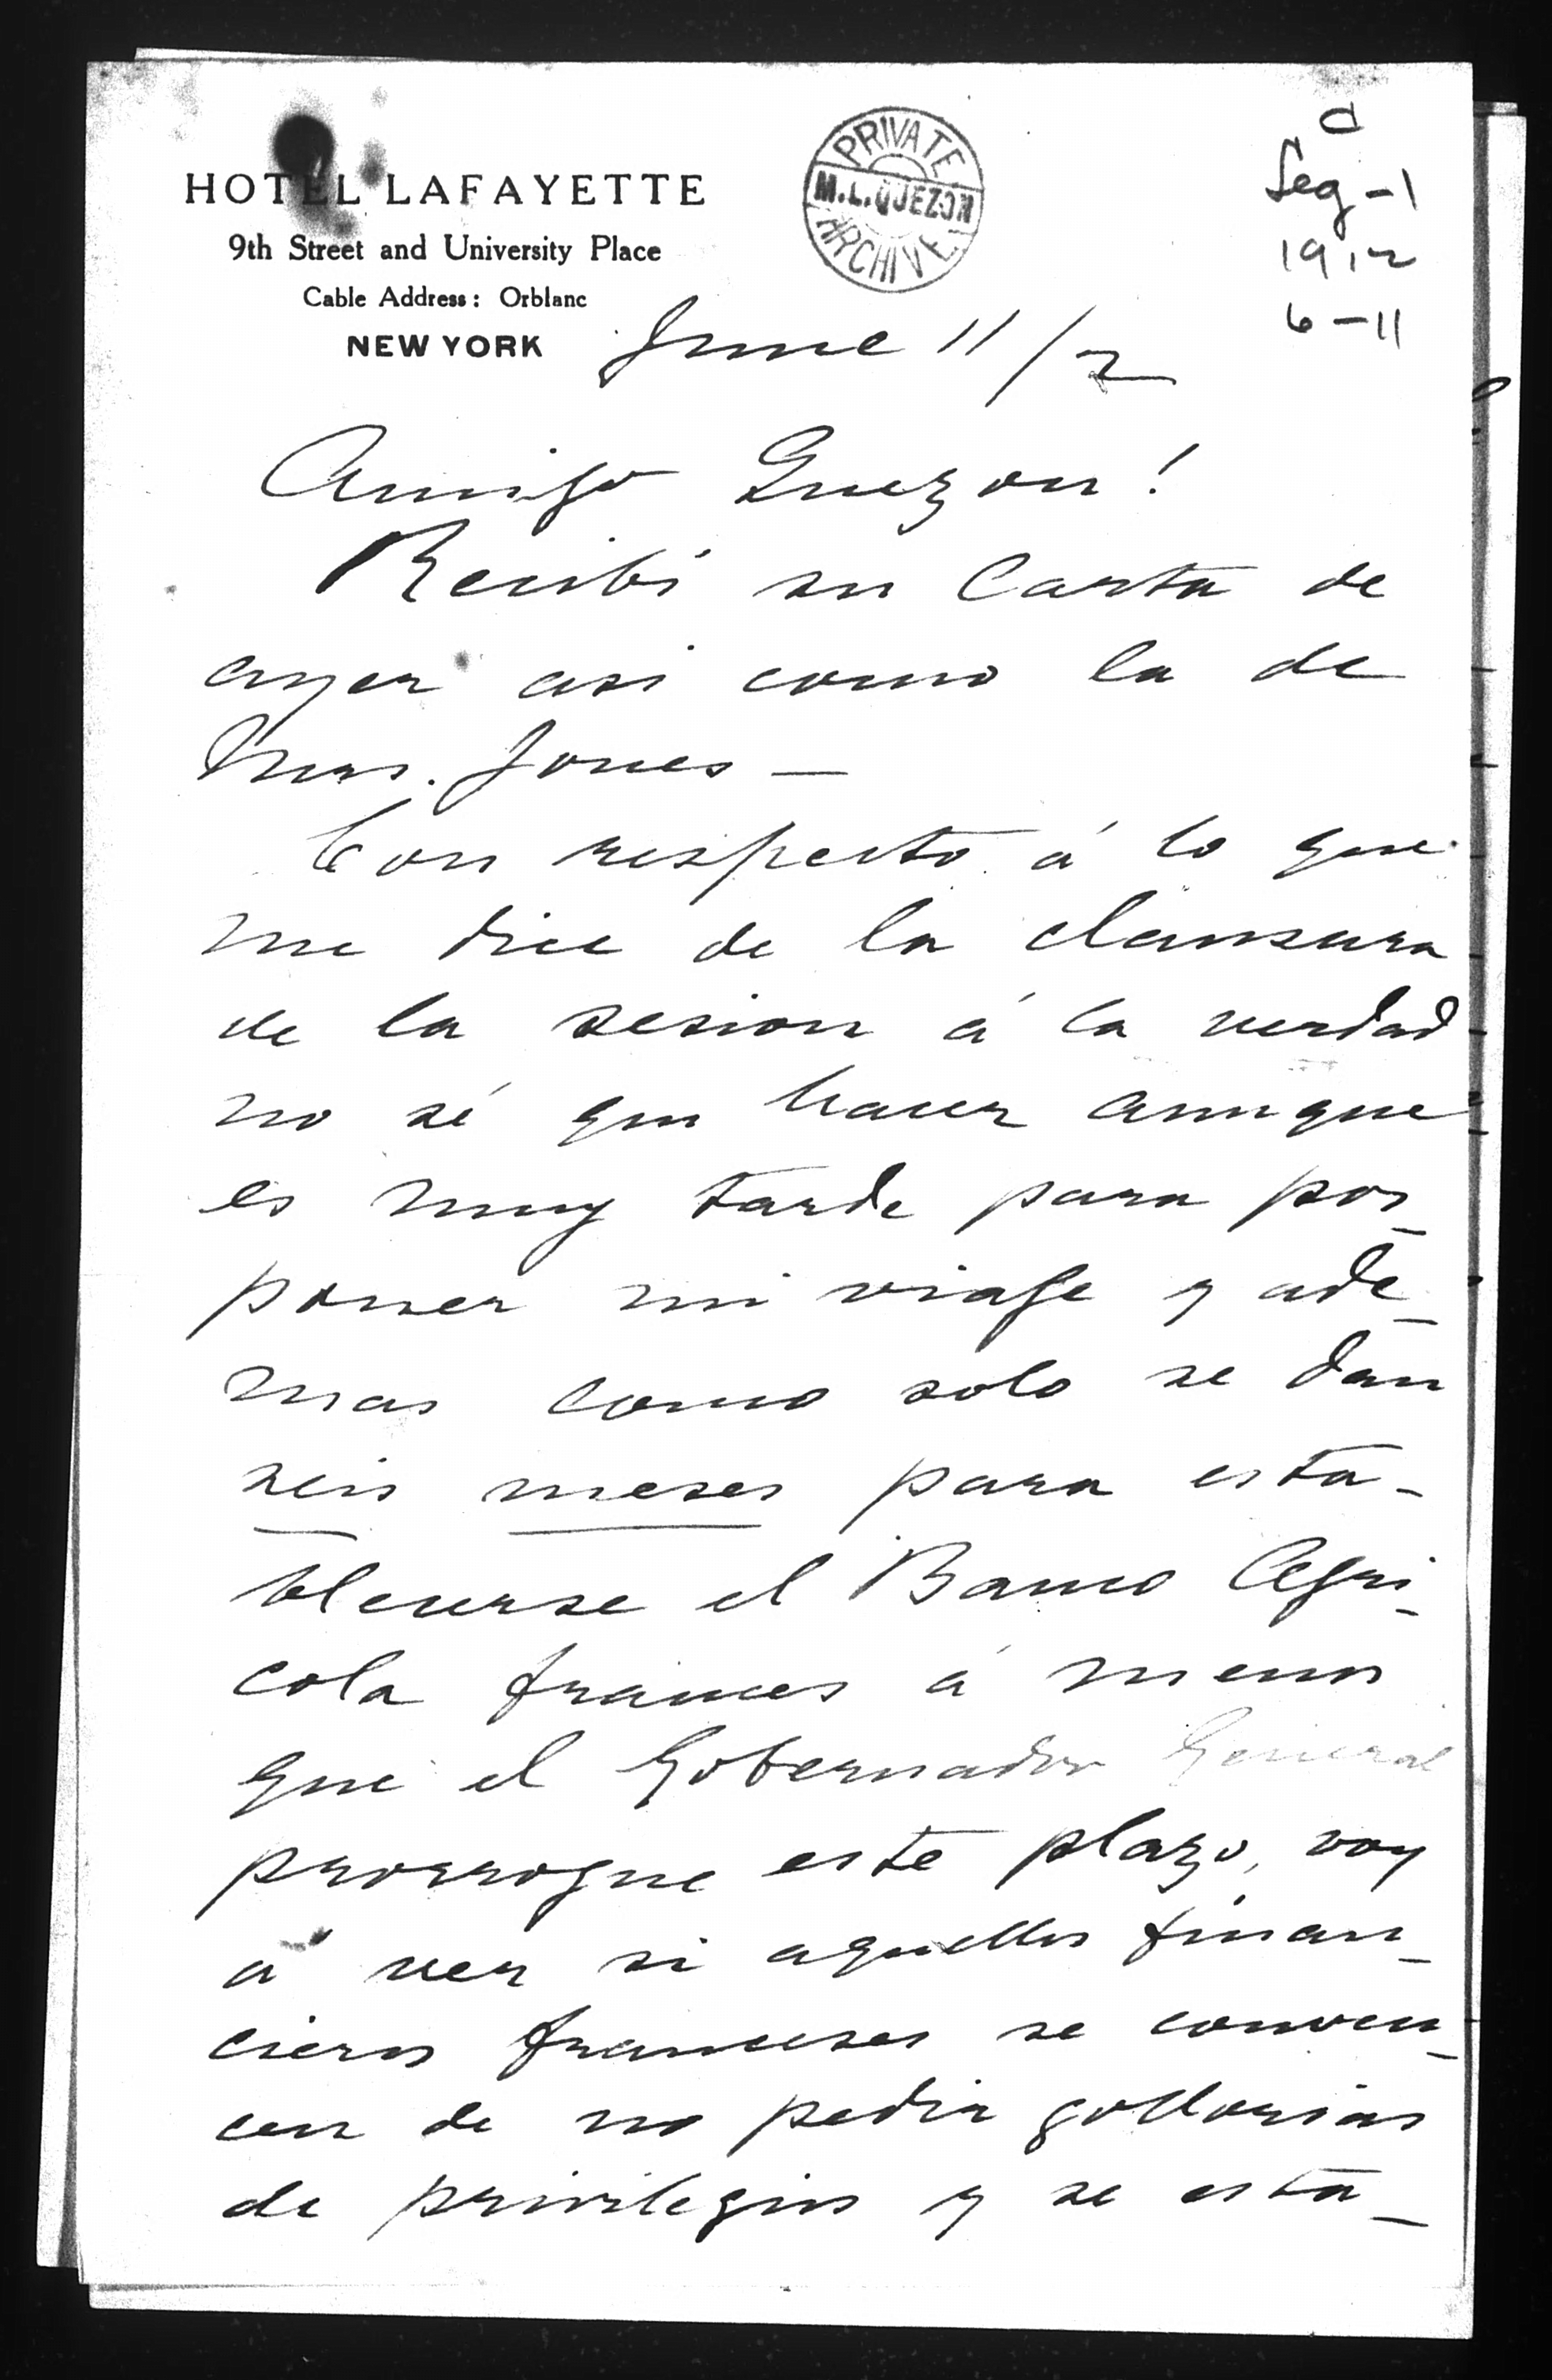 HOTEL LAFAYETTE
9th Street and University Place
Cable Address: Orblanc
NEW YORK
PRIVATE
M.L.QUEZON
ARCHIVE
C
Leg-1
1912
6-11
June 11/2
Amigo Quezon!
Recibí su carta de
ayer asi como la de
Mrs. Jones —
Con respecto á lo que
me dice de la clausura
de la sesion á la verdad
no sé que hacer aunque
es muy tarde para pos-
poner mi viage y ade-
mas como solo se dan
seis meses para esta-
blecerse el Banco Agri-
cola frances á menos
que el Gobernador General
prorrogue este plazo, voy
á ver si aquellos finan-
cieros franceses se conven-
cen de no pedir gollorias
de privilegios y se esta-